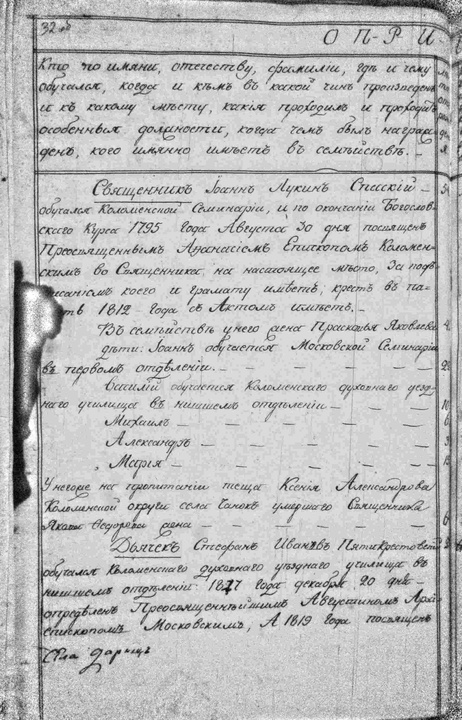 32 об
О П Р И
Кто по имяни, отечеству, фамилии, где и чему
обучался, когда и кѣмъ въ какой чинъ произведенъ
и къ какому мѣсту, какія проходилъ и проходитъ
особенныя должности, когда чемъ былъ награж-
денъ, кого имянно имѣетъ въ семѣйствѣ. —
Священникъ Іоаннъ Лукинъ Спаскій —
обучался Коломенской Семинаріи, и по окончаніи Богослов-
скаго Курса 1795 года Августа 30 дня посвященъ
Преосвященнымъ Аѳанасіемъ Епископомъ Коломен-
скимъ во Священника, на настоящее мѣсто, За подъ
писаніемъ коего и грамату имѣетъ, крестъ въ па-
мять 1812 года съ Актомъ имѣетъ. —
Въ семѣйствѣ у него жена Прасковья Яковлева
дѣти: Іоаннъ обучается Московской Семинаріи
въ первомъ отдѣленіи. —
Василій обучается Коломенскаго духовнаго уѣзд-
наго училища въ нишшемъ отдѣленіи —
Михаилъ —
Александръ —
Марія —
У негоже на пропитаніи теща Ксенія Александрова
Коломенской округи села умершаго Священника
Якова Ѳедорова жена —
Дьячекъ Стефанъ Ивановъ Пятикрестовскій
обучался Коломенскаго духовнаго уѣзднаго училища въ
нишшемъ отдѣленіи 1817 года декабря 20 дня
опредѣленъ Преосвященнѣйшимъ Августиномъ Архі-
епископомъ Московскимъ, А 1819 года посвященъ
Села Дарищъ